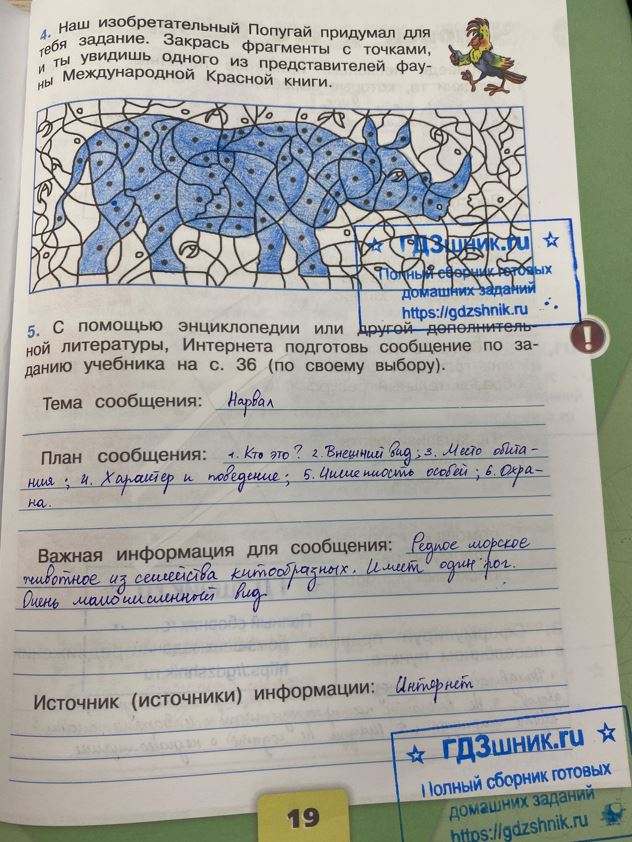 4. Наш изобретательный Попугай придумал для
тебя задание. Закрась фрагменты с точками,
и ты увидишь одного из представителей фау-
ны Международной Красной книги.
ГДЗшник.ru
Полный сборник готовых
домашних заданий
https://gdzshnik.ru
5. С помощью энциклопедии или другой дополнитель-
ной литературы, Интернета подготовь сообщение по за-
данию учебника на с. 36 (по своему выбору).
!
Тема сообщения: Нарвал
План сообщения: 1. Кто это? 2. Внешний вид; 3. Место обита-
ния; 4. Характер и поведение; 5. Численность особей; 6. Охра-
на.
Важная информация для сообщения: Редкое морское
животное из семейства китообразных. Имеет один рог.
Очень малочисленный вид.
Источник (источники) информации: Интернет
ГДЗшник.ru
Полный сборник готовых
домашних заданий
https://gdzshnik.ru
19